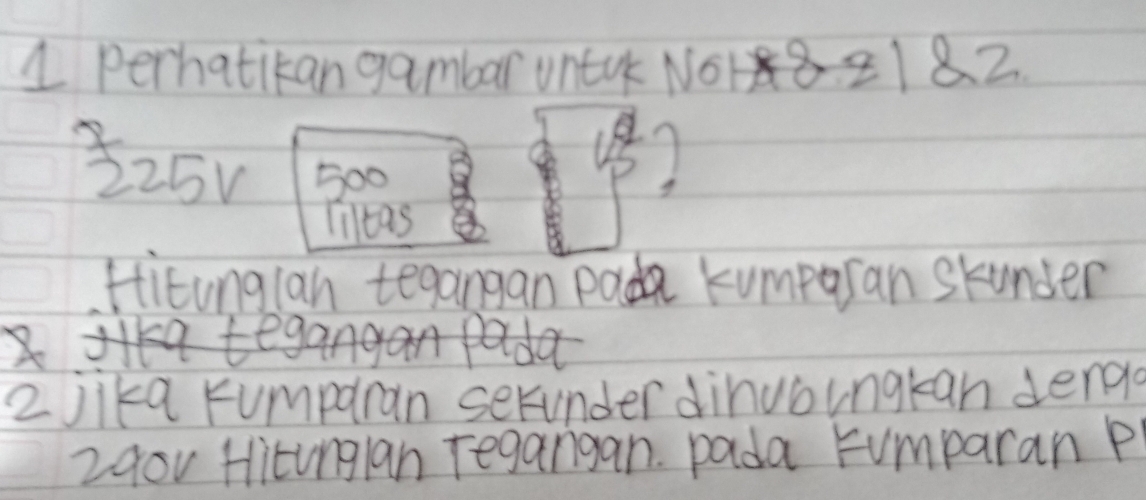 1 Perhatikan gambar untuk No 1 & 2
225V 500 lilitas Vs?
Hitunglah tegangan pada kumparan Skunder
jika tegangan pada
2 jika kumparan sekunder dihubungkan
Hitunglah Tegangan. pada kumparan